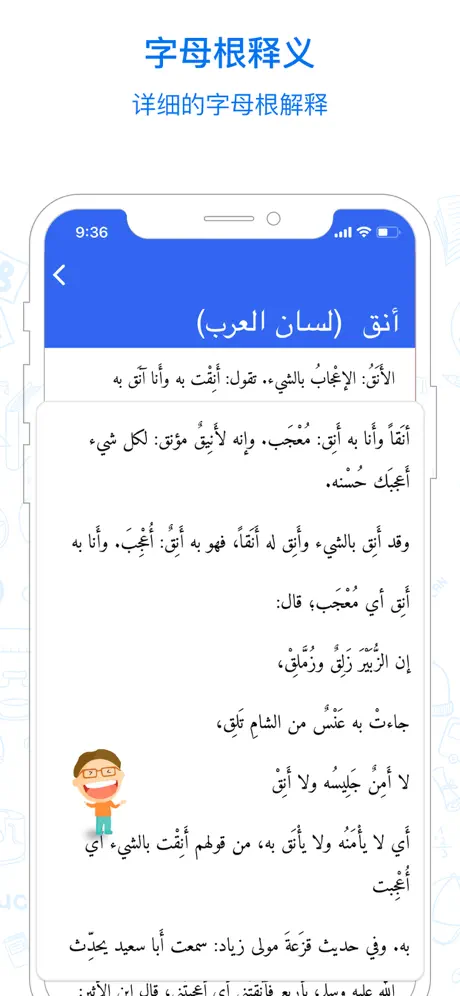 字母根释义
详细的字母根解释
9:36
أنق (لسان العرب)
الأَنَقُ: الإعْجابُ بالشيء. تقول: أَنِقْت به وأَنا آنَق به
أَنَقاً وأَنا به أَنِق: مُعْجَب. وإنه لأَنِيقٌ مؤنق: لكل شيء
أَعجبَك حُسْنه.
وقد أَنِق بالشيء وأَنِق له أَنَقاً، فهو به أَنِقٌ: أُعْجِبَ. وأَنا به
أَنِق أي مُعْجَب؛ قال:
إن الزُّبَيْرَ زَلِقٌ وزُمَّلِقْ،
جاءتْ به عَنْسٌ من الشامِ تَلِق،
لا أَمِنٌ جَلِيسُه ولا أَنِقْ
أَي لا يأْمَنُه ولا يأْنَق به، من قولهم أَنِقْت بالشيء أَي
أُعْجِبت
به. وفي حديث قزَعةَ مولى زياد: سمعت أَبا سعيد يحدِّث
الله عليه وسلم، بأَربع فآنقتني أَي أَعجبتني، قال ابن الأثير: